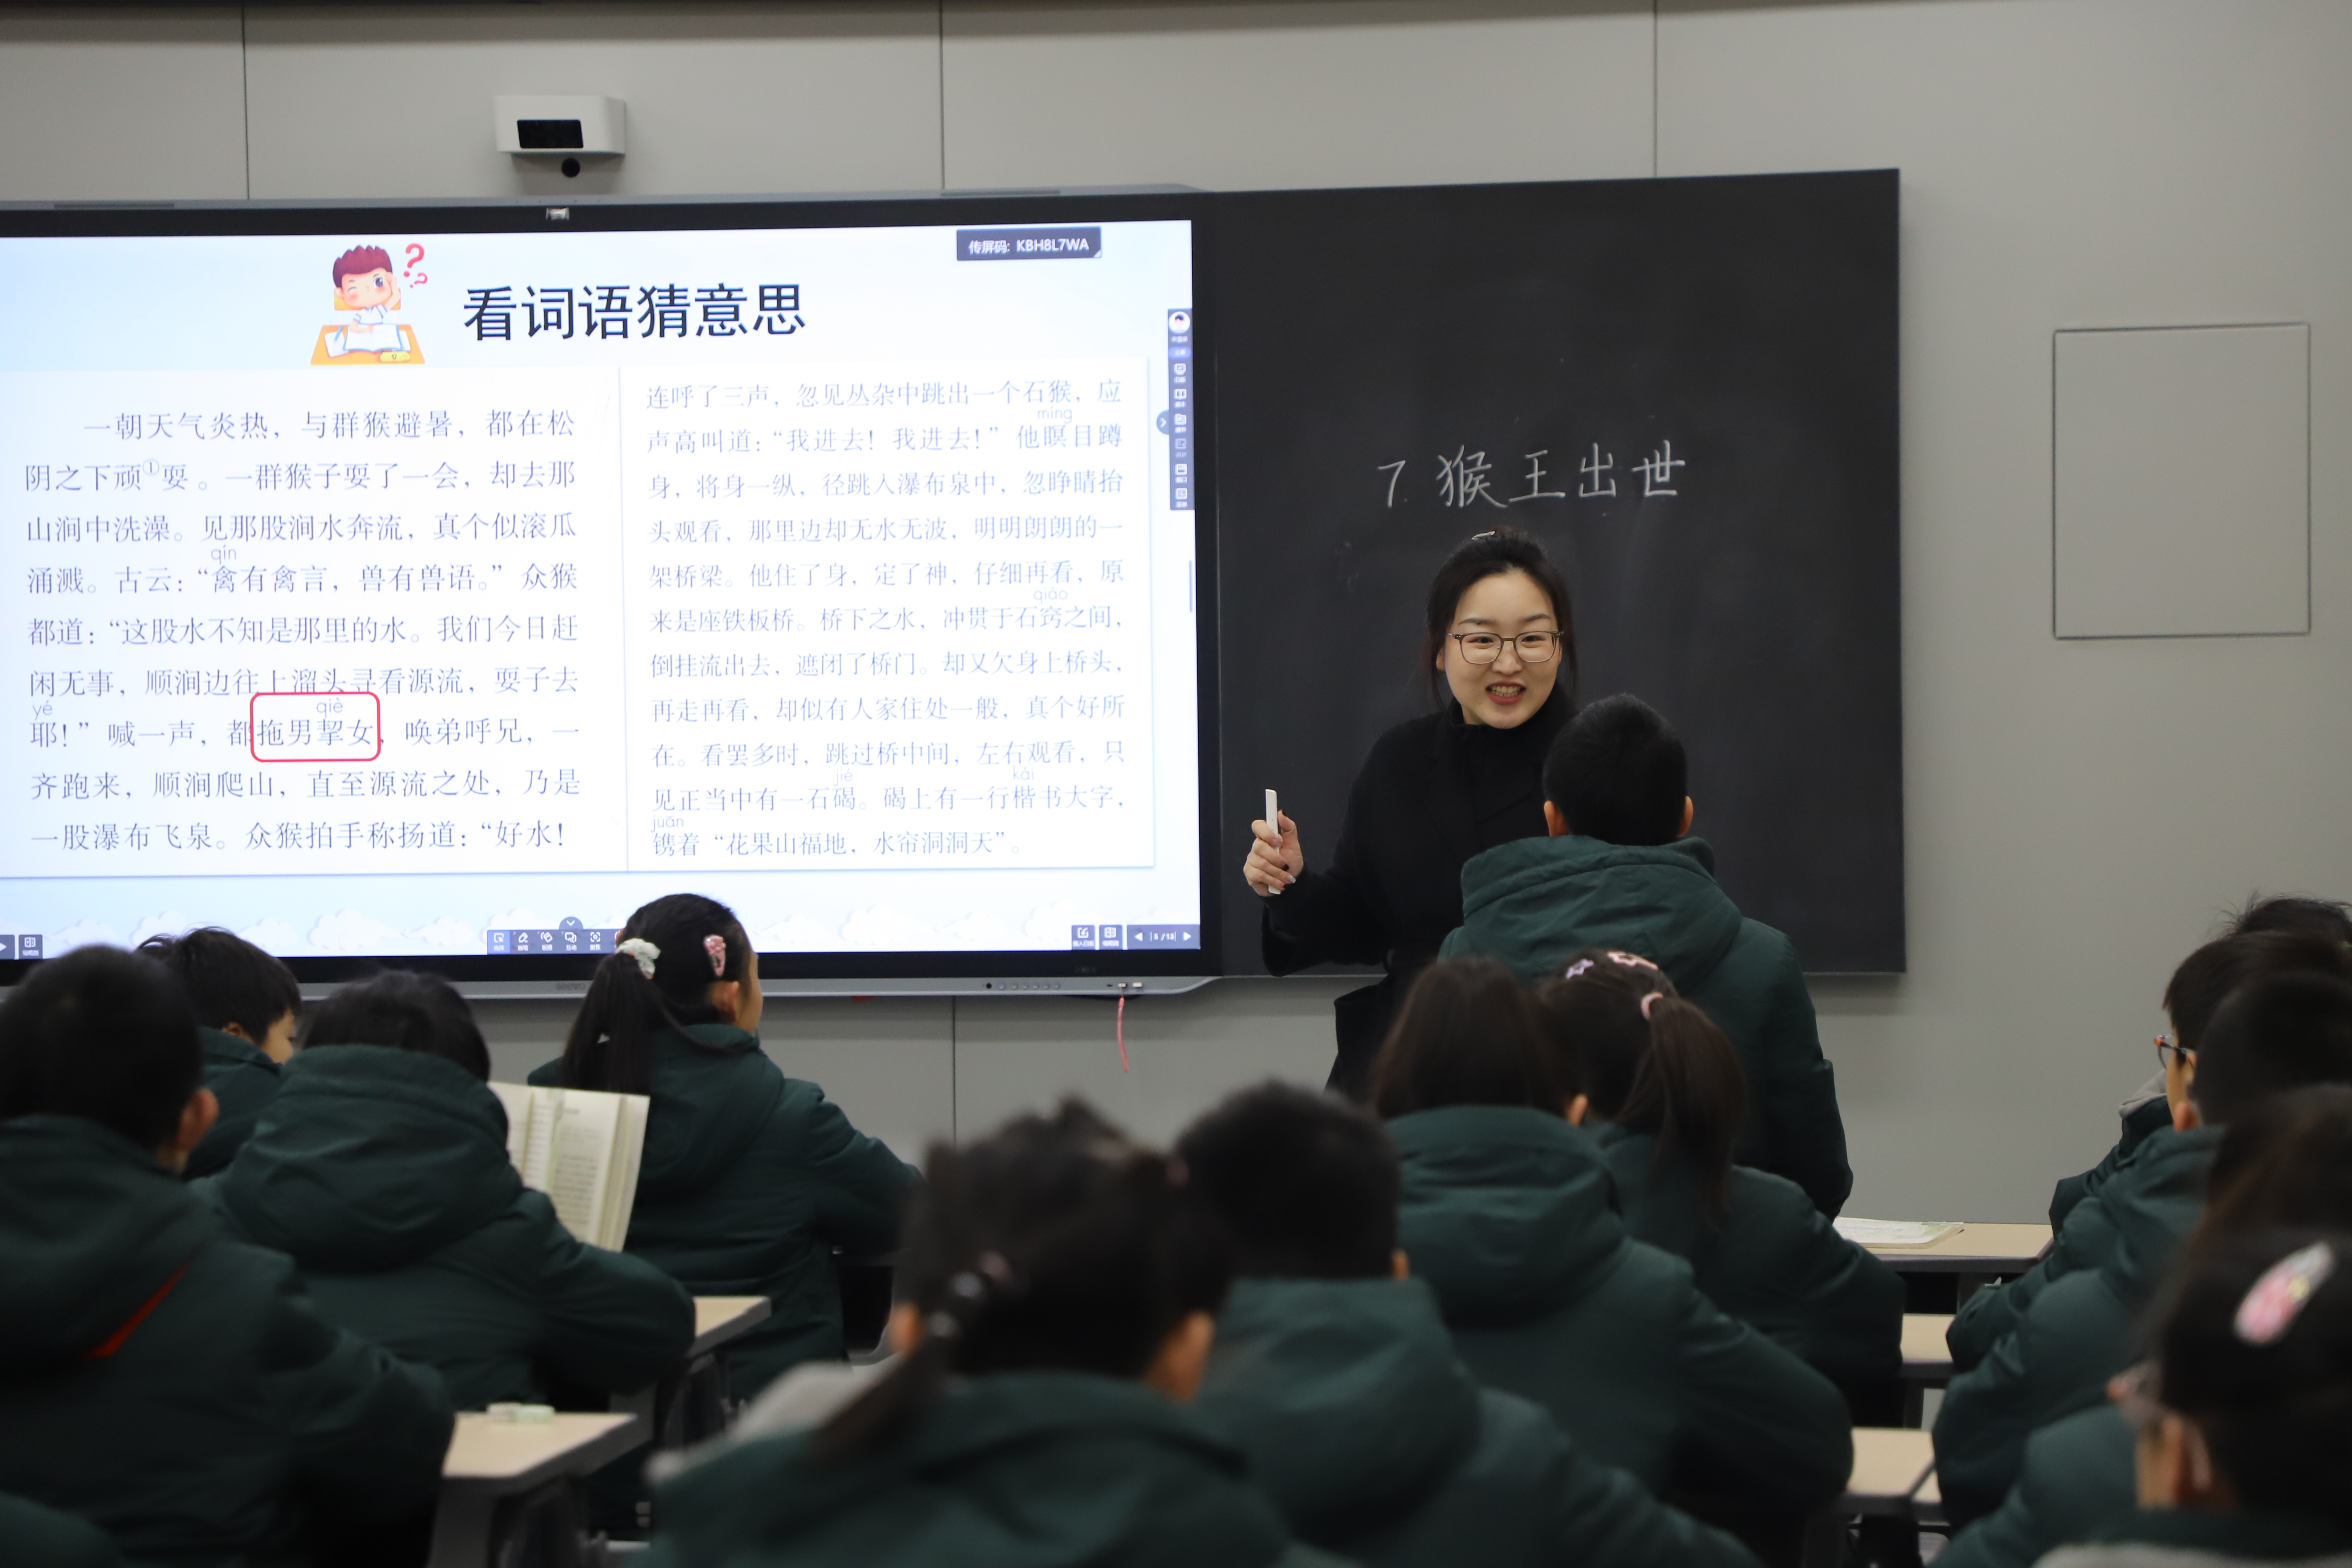 传屏码: KBH8L7WA
看词语猜意思
一朝天气炎热，与群猴避暑，都在松
阴之下顽①耍。一群猴子耍了一会，却去那
山涧中洗澡。见那股涧水奔流，真个似滚瓜
qín
涌溅。古云：“禽有禽言，兽有兽语。”众猴
都道：“这股水不知是那里的水。我们今日赶
闲无事，顺涧边往上溜头寻看源流，耍子去
yé qiè
耶！”喊一声，都拖男挈女，唤弟呼兄，一
齐跑来，顺涧爬山，直至源流之处，乃是
一股瀑布飞泉。众猴拍手称扬道：“好水！
连呼了三声，忽见丛杂中跳出一个石猴，应
míng
声高叫道：“我进去！我进去！”他瞑目蹲
身，将身一纵，径跳入瀑布泉中，忽睁睛抬
头观看，那里边却无水无波，明明朗朗的一
架桥梁。他住了身，定了神，仔细再看，原
qiào
来是座铁板桥。桥下之水，冲贯于石窍之间，
倒挂流出去，遮闭了桥门。却又欠身上桥头，
再走再看，却似有人家住处一般，真个好所
在。看罢多时，跳过桥中间，左右观看，只
jié kǎi
见正当中有一石碣。碣上有一行楷书大字，
juān
镌着“花果山福地，水帘洞洞天”。
5 / 13
7. 猴王出世